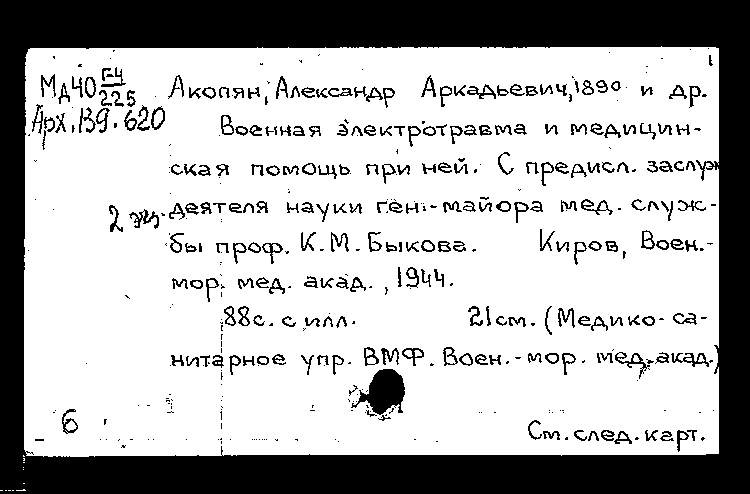 1
Мд40 Г-4/225
Арх.139.620
Акопян, Александр Аркадьевич, 1890 и др.
Военная электротравма и медицин-
ская помощь при ней. С предисл. заслуж
2 экз. деятеля науки ген.-майора мед. служ-
бы проф. К.М.Быкова. Киров, Воен.-
мор. мед. акад., 1944.
88с. с илл. 21см. (Медико-са-
нитарное упр. ВМФ. Воен.-мор. мед. акад.)
6
См.след.карт.